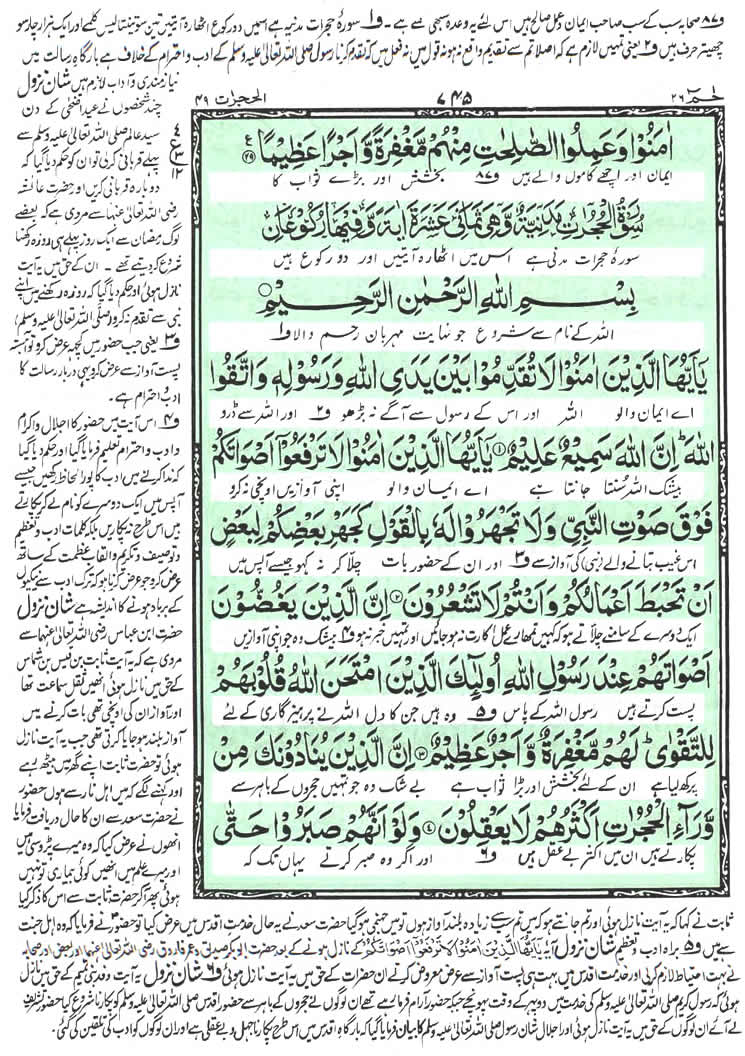 و۸۷ صحابہ سب کے سب صاحب ایمان و عمل صالح ہیں اس لئے یہ وعدہ سبھی سے ہے ۔ و۱ سورۂ حجرات مدنیہ ہے اس میں دو رکوع اٹھارہ آیتیں تین سو تینتالیس کلمے اور ایک ہزار چار سو
چھہتر حرف ہیں و۲ یعنی تمہیں لازم ہے کہ اصلاً تم سے تقدیم واقع نہ ہو نہ قول میں نہ فعل میں کہ تقدم کرنا رسول صلی اللہ تعالیٰ علیہ وسلم کے ادب و احترام کے خلاف ہے بارگاہِ رسالت میں
نیازمندی و آداب لازم ہیں شانِ نزول
چند شخصوں نے عید اضحیٰ کے دن
سید عالم صلی اللہ تعالیٰ علیہ وسلم سے
پہلے قربانی کرلی تو ان کو حکم دیا گیا کہ
دوبارہ قربانی کریں اور حضرت عائشہ
رضی اللہ تعالیٰ عنہا سے مروی ہے کہ بعضے
لوگ رمضان سے ایک روز پہلے ہی روزہ رکھنا
شروع کردیتے تھے ۔ ان کے حق میں یہ آیت
نازل ہوئی اور حکم دیا گیا کہ روزہ رکھنے میں اپنے
نبی سے تقدم نہ کرو (صلی اللہ تعالیٰ علیہ وسلم)
و۳ یعنی جب حضور میں کچھ عرض کرو تو آہستہ
پست آواز سے عرض کرو یہی دربارِ رسالت کا
ادب و احترام ہے ۔
و۴ اس آیت میں حضور کا اجلال و اکرام
و ادب و احترام تعلیم فرمایا گیا اور حکم دیا گیا
کہ ندا کرنے میں ادب کا پورا لحاظ رکھیں جیسے
آپس میں ایک دوسرے کو نام لے کر پکارتے
ہیں اس طرح نہ پکاریں بلکہ کلمات ادب و تعظیم
و توصیف و تکریم و القاب عظمت کے ساتھ
عرض کرو جو عرض کرنا ہو کہ ترک ادب سے نیکیوں
کے برباد ہونے کا اندیشہ ہے شانِ نزول
حضرت ابن عباس رضی اللہ تعالیٰ عنہما سے
مروی ہے کہ یہ آیت ثابت بن قیس بن شماس
کے حق میں نازل ہوئی انہیں ثقل سماعت تھا
اور آواز ان کی اونچی تھی بات کرنے میں
آواز بلند ہو جایا کرتی تھی جب یہ آیت نازل
ہوئی تو حضرت ثابت اپنے گھر میں بیٹھ رہے
اور کہنے لگے کہ میں اہل نار سے ہوں حضور
نے حضرت سعد سے ان کا حال دریافت فرمایا
انھوں نے عرض کیا کہ وہ میرے پڑوسی ہیں
اور میرے علم میں انھیں کوئی بیماری تو نہیں
ہوئی پھر آکر حضرت ثابت سے اس کا ذکر کیا
الحجرٰت ۴۹
۷۴۵
حٰمٓ ۲۶
ع
۴
۳
۱۲
اٰمَنُوْا وَعَمِلُوا الصّٰلِحٰتِ مِنْهُمْ مَّغْفِرَةً وَّاَجْرًا عَظِیْمًا ۲۹
ایمان اور اچھے کاموں والے ہیں و۸۷ بخشش اور بڑے ثواب کا
سُوْرَةُ الْحُجُرٰتِ مَدَنِیَّةٌ وَّهِیَ ثَمَانِیَ عَشَرَةَ اٰیَةً وَّفِیْهَا رُكُوْعَانِ
سورۂ حجرات مدنی ہے اس میں اٹھارہ آیتیں اور دو رکوع ہیں
بِسْمِ اللّٰهِ الرَّحْمٰنِ الرَّحِیْمِ
اللہ کے نام سے شروع جو نہایت مہربان رحم والا و۱
یٰۤاَیُّهَا الَّذِیْنَ اٰمَنُوْا لَا تُقَدِّمُوْا بَیْنَ یَدَیِ اللّٰهِ وَرَسُوْلِهٖ وَاتَّقُوا
اے ایمان والو اللہ اور اس کے رسول سے آگے نہ بڑھو و۲ اور اللہ سے ڈرو
اللّٰهَ ؕ اِنَّ اللّٰهَ سَمِیْعٌ عَلِیْمٌ ۱ یٰۤاَیُّهَا الَّذِیْنَ اٰمَنُوْا لَا تَرْفَعُوْۤا اَصْوَاتَكُمْ
بیشک اللہ سُنتا جانتا ہے اے ایمان والو اپنی آوازیں اونچی نہ کرو
فَوْقَ صَوْتِ النَّبِیِّ وَلَا تَجْهَرُوْا لَهٗ بِالْقَوْلِ كَجَهْرِ بَعْضِكُمْ لِبَعْضٍ
اس غیب بتانے والے (نبی) کی آواز سے و۳ اور ان کے حضور بات چلّا کر نہ کہو جیسے آپس میں
اَنْ تَحْبَطَ اَعْمَالُكُمْ وَاَنْتُمْ لَا تَشْعُرُوْنَ ۲ اِنَّ الَّذِیْنَ یَغُضُّوْنَ
ایک دوسرے کے سامنے چلّاتے ہو کہ کہیں تمھارے عمل اکارت نہ ہوجائیں اور تمہیں خبر نہ ہو و۴ بیشک وہ جو اپنی آوازیں
اَصْوَاتَهُمْ عِنْدَ رَسُوْلِ اللّٰهِ اُولٰٓىِٕكَ الَّذِیْنَ امْتَحَنَ اللّٰهُ قُلُوْبَهُمْ
پست کرتے ہیں رسول اللہ کے پاس و۵ وہ ہیں جن کا دل اللہ نے پرہیزگاری کے لئے
لِلتَّقْوٰی ؕ لَهُمْ مَّغْفِرَةٌ وَّاَجْرٌ عَظِیْمٌ ۳ اِنَّ الَّذِیْنَ یُنَادُوْنَكَ مِنْ
پرکھ لیا ہے ان کے لئے بخشش اور بڑا ثواب ہے بے شک وہ جو تمہیں حجروں کے باہر سے
وَّرَآءِ الْحُجُرٰتِ اَكْثَرُهُمْ لَا یَعْقِلُوْنَ ۴ وَلَوْ اَنَّهُمْ صَبَرُوْا حَتّٰی
پکارتے ہیں ان میں اکثر بے عقل ہیں و۶ اور اگر وہ صبر کرتے یہاں تک کہ
ثابت نے کہا کہ یہ آیت نازل ہوئی اور تم جانتے ہو کہ میں تم سب سے زیادہ بلند آواز ہوں تو میں جہنمی ہوگیا حضرت سعد نے یہ حال خدمتِ اقدس میں عرض کیا تو حضور نے فرمایا کہ وہ اہل جنت
سے ہیں و۵ براہ ادب و تعظیم شانِ نزول آیہ یٰۤاَیُّهَا الَّذِیْنَ اٰمَنُوْا لَا تَرْفَعُوْۤا اَصْوَاتَكُمْ کے نازل ہونے کے بعد حضرت ابوبکر صدیق و عمر فاروق رضی اللہ تعالیٰ عنہما اور بعض اور صحابہ
نے بہت احتیاط لازم کرلی اور خدمتِ اقدس میں بہت ہی پست آواز سے عرض معروض کرتے ان حضرات کے حق میں یہ آیت نازل ہوئی و۶ شانِ نزول یہ آیت وفد بنی تمیم کے حق میں نازل
ہوئی کہ رسول کریم صلی اللہ تعالیٰ علیہ وسلم کی خدمت میں دوپہر کے وقت پہونچے جبکہ حضور آرام فرما رہے تھے ان لوگوں نے حجرے کے باہر سے حضور اقدس صلی اللہ تعالیٰ علیہ وسلم کو پکارنا شروع کیا حضور تشریف
لے آئے ان لوگوں کے حق میں یہ آیت نازل ہوئی اور اجلال شان رسول صلی اللہ تعالیٰ علیہ وسلم کا بیان فرمایا گیا کہ بارگاہِ اقدس میں اس طرح پکارنا جہل و بے عقلی ہے اور ان لوگوں کو ادب کی تلقین کی گئی ۔